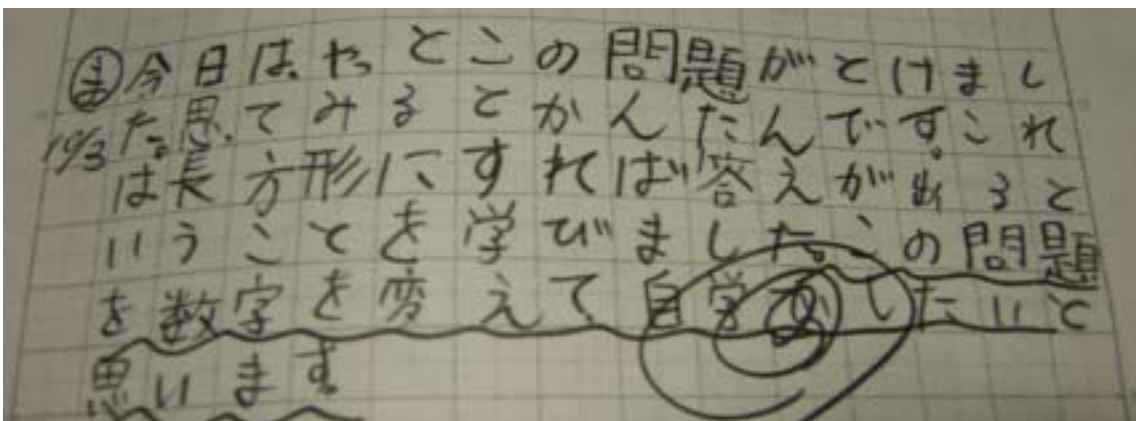 ま今日は、やっとこの問題がとけまし
10/3た。思ってみるとかんたんです。これ
は長方形にすれば答えが出ると
いうことを学びました。この問題
を数字を変えて、自学でしたいと
思います。